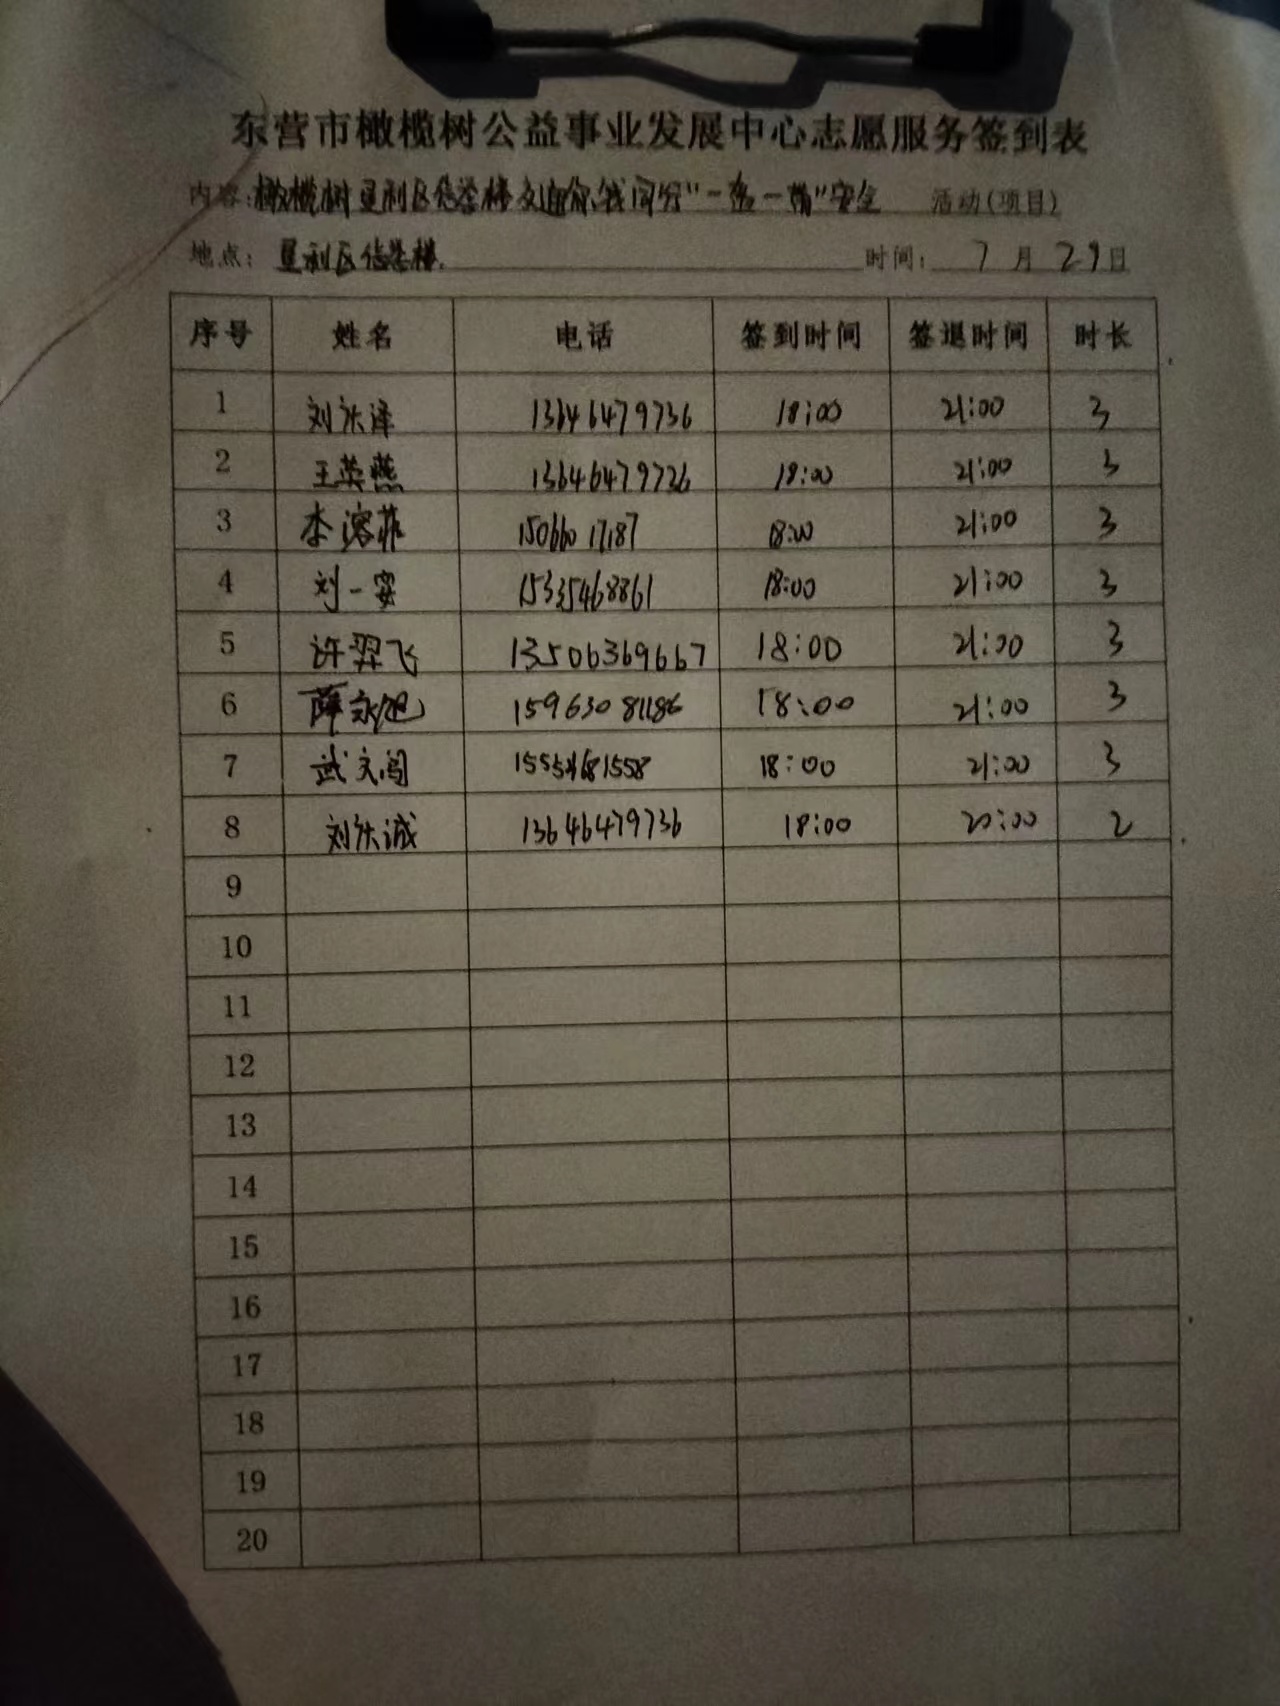 东营市橄榄树公益事业发展中心志愿服务签到表
内容:橄榄树垦利区信誉楼交通 "一盔一带"安全 活动(项目)
地点:垦利区信誉楼. 时间: 7月29日
序号 姓名 电话 签到时间 签退时间 时长
1 刘 泽 13646479736 18:00 21:00 3
2 王英燕 13646479726 18:00 21:00 3
3 李溶菲 15066017187 18:00 21:00 3
4 刘一安 15335468861 18:00 21:00 3
5 许羿飞 13506369667 18:00 21:00 3
6 薛永旭 15963081186 18:00 21:00 3
7 武文闯 18:00 21:00 3
8 刘 诚 13646479736 18:00 20:00 2
9
10
11
12
13
14
15
16
17
18
19
20